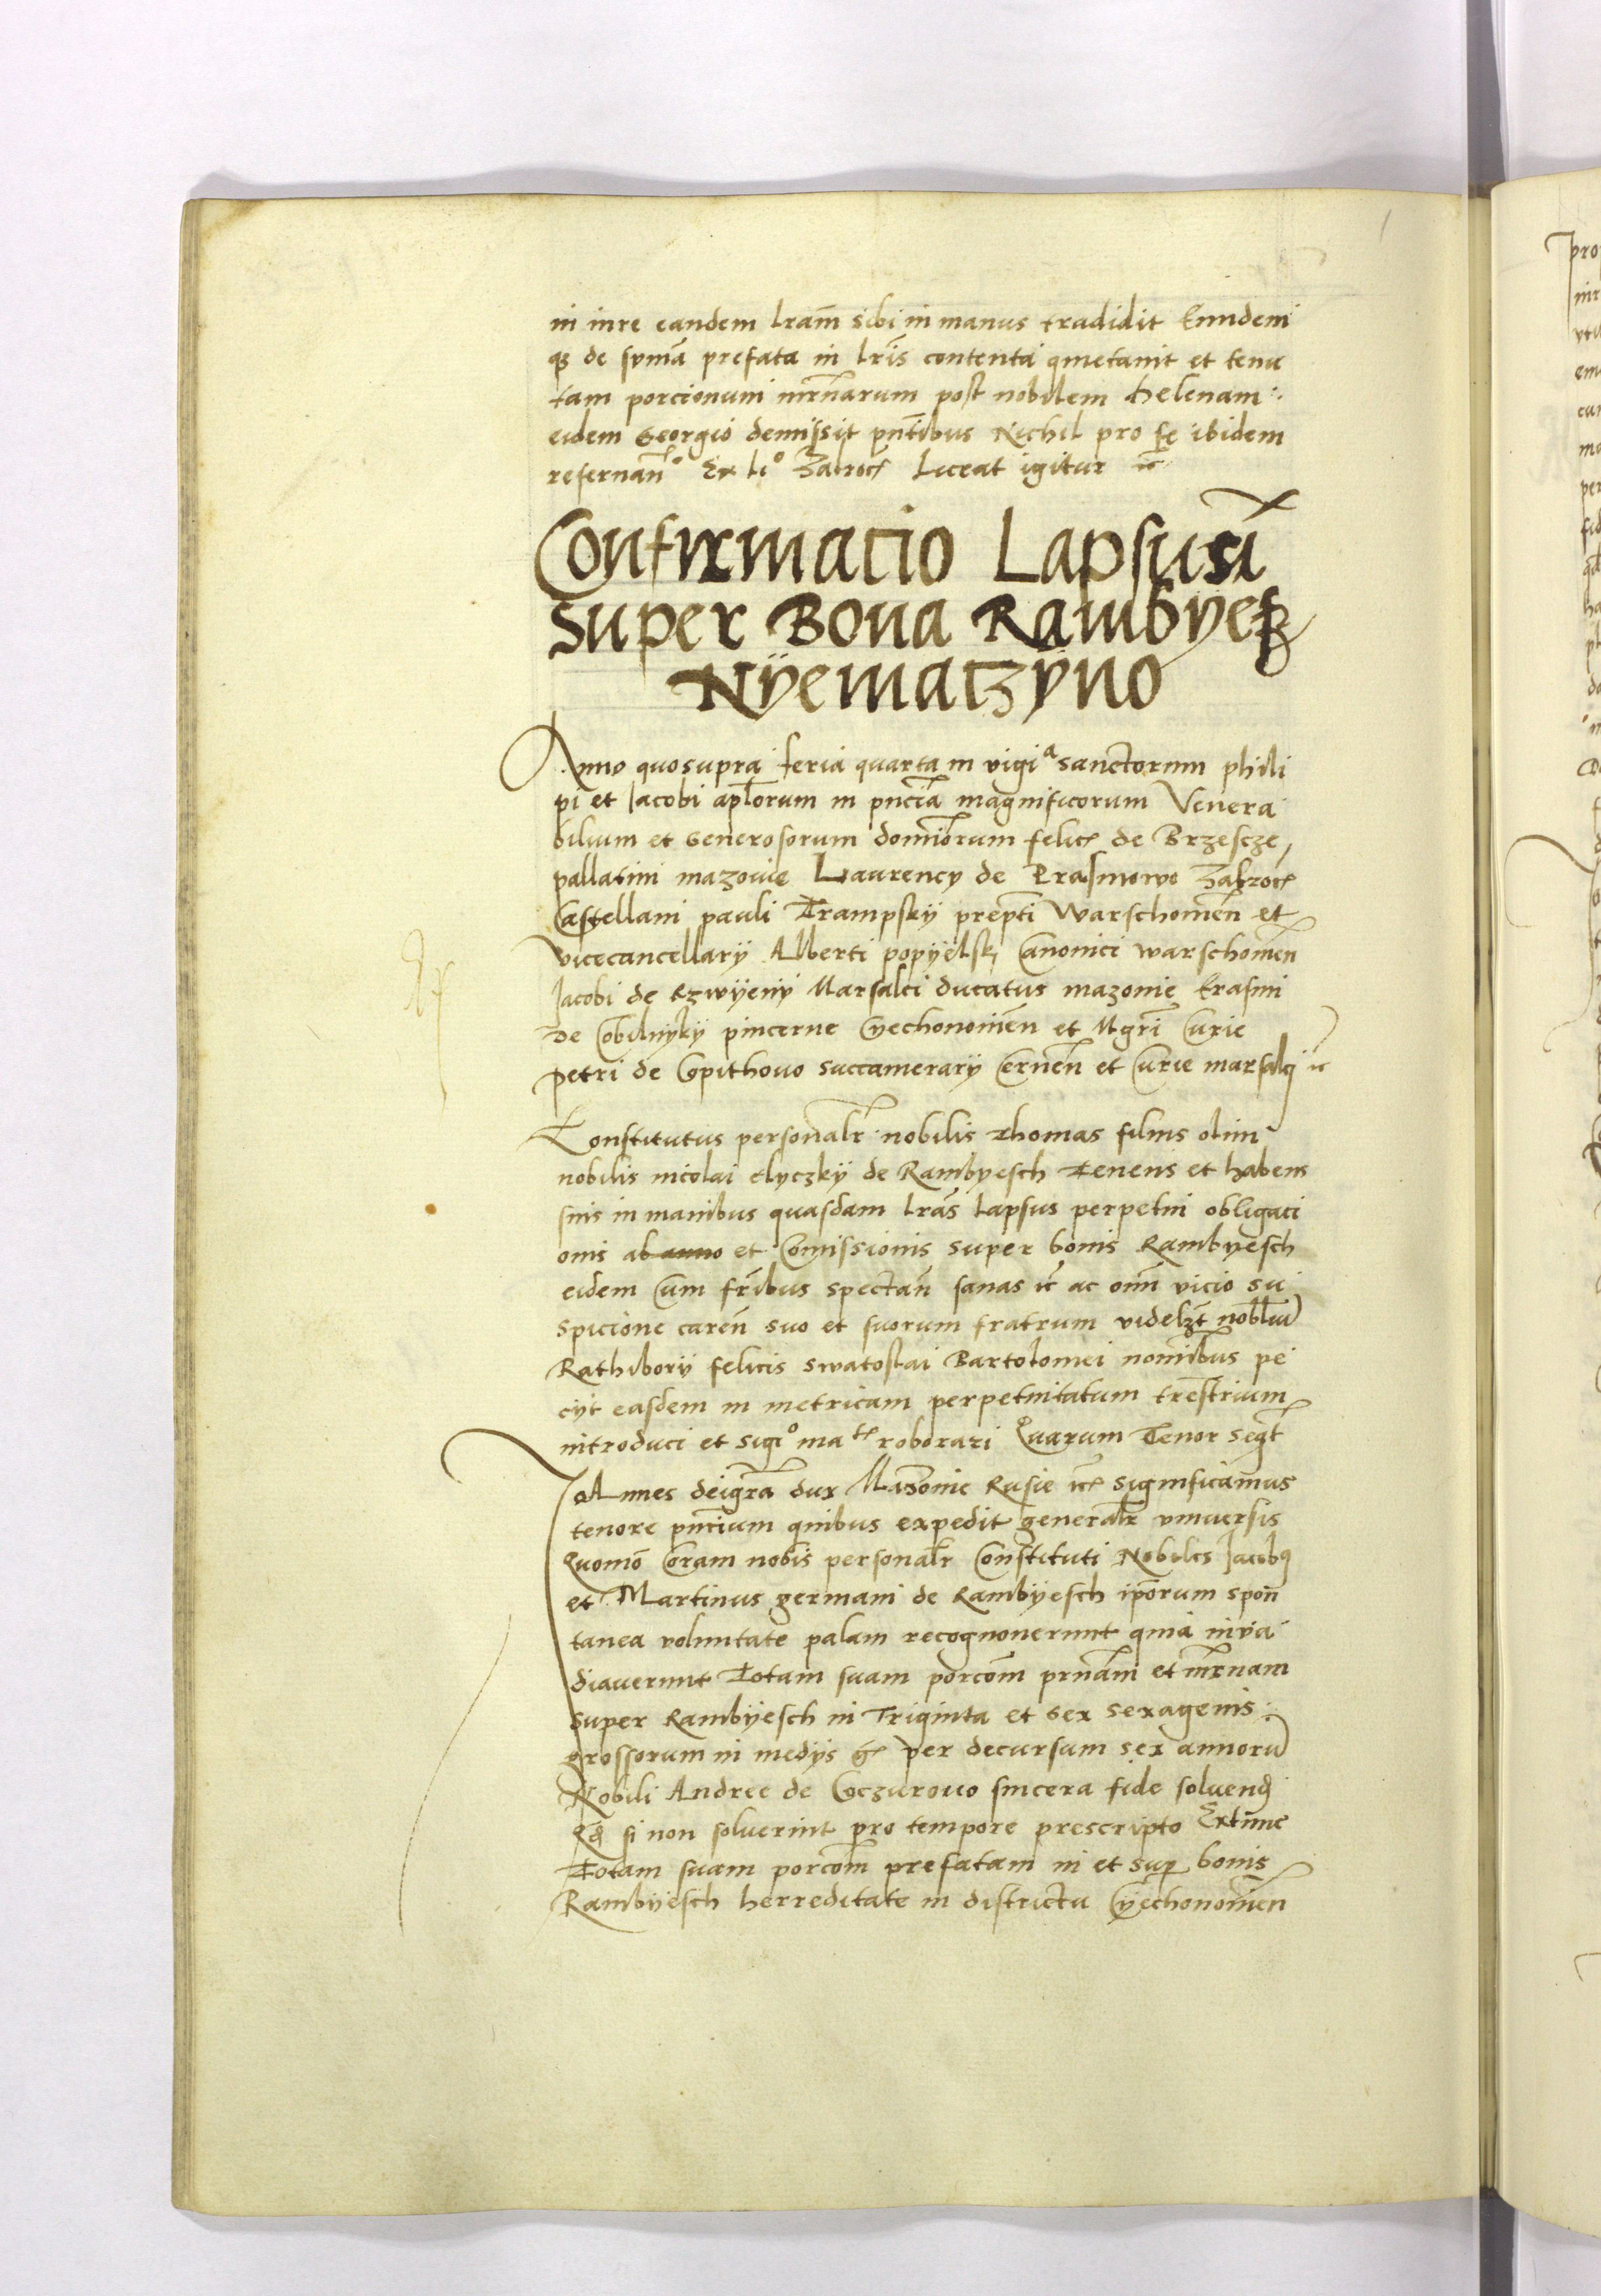 in iure eandem lram sibi in manus tradidit Eundem
q3 de suma prefata in lris contenta quietauit et tenu
tam porcionum mrnarum post nobilem Helenam
eidem Georgio demissit pntibus Nichil pro se ibidem
reseruan° Ex li° Zacrocz Liceat igitur ic
Confirmacio Lapsus
super Bona Rambyesz
Nyemaczyno
Anno quosupra feria quarta in vigia sanctorum phili
pi et Jacobi aplorum in pncia magnificorum Venera
bilium et Generosorum dominorum felic de Brzescze
pallatini mazouie Laurency de Prasmowo Zakrocz
Castellani pauli Trampsky prepti Warschouien et
vicecancellary Alberti popyelsk Canonici warschouien
Jacobi de Rzwyeny Marsalci ducatus mazouie Erasmi
de Cobilnyky pincerne Cyechonouien et Mgri Curie
petri de Copithouo succamerary Cernen et Curie marsalci ic
Constitutus personalr nobilis Thomas filius olim
nobilis nicolai elyczky de Rambyesch Tenens et habens
suis in manibus quasdam lras lapsus perpetui obligaci
onis ab anno et Comissionis super bonis Rambyesch
eidem Cum fribus spectan sanas ic ac omi vicio su
spicione caren suo et suorum fratrum videlzt nobliu
Rathibory felicis swatoslai Bartolomei nominibus pe
cyt easdem in metricam perpetuitatum trestrium
introduci et sigi° ma ti roborari Quarum Tenor seqt
JoAnnes deigra dux Mazouie Rusie ic significamus
tenore pncium quibus expedit generalr vniuersis
Quomo Coram nobis personalr Constituti Nobiles Jacobus
et Martinus germani de Rambyesch iporum spon
tanea voluntate palam recognouerunt quia inva
diauerunt Totam suam porcom prnam et mrnam
super Rambyesch in Triginta et sex sexagenis
grossorum in medys g per decursum sex annoru
Nobili Andree de Goczurouo sincera fide soluend
Qd si non soluerint pro tempore prescripto Extunc
Totam suam porcom prefatam in et sup bonis
Rambyesch herreditate in districtu Cyechonouien